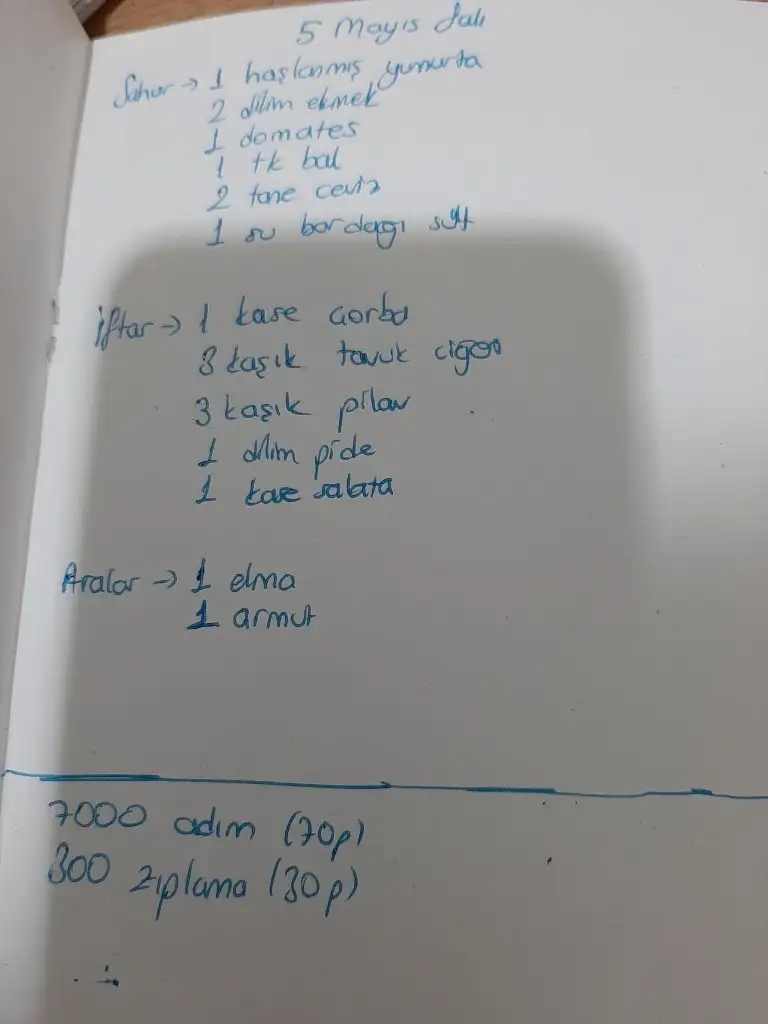 5 Mayıs Salı
Sahur → 1 haşlanmış yumurta
2 dilim ekmek
1 domates
1 tk bal
2 tane ceviz
1 su bardağı süt
İftar → 1 kase çorba
3 kaşık tavuk ciğer
3 kaşık pilav
1 dilim pide
1 kase salata
Aralar → 1 elma
1 armut
7000 adım (70p)
300 zıplama (30p)